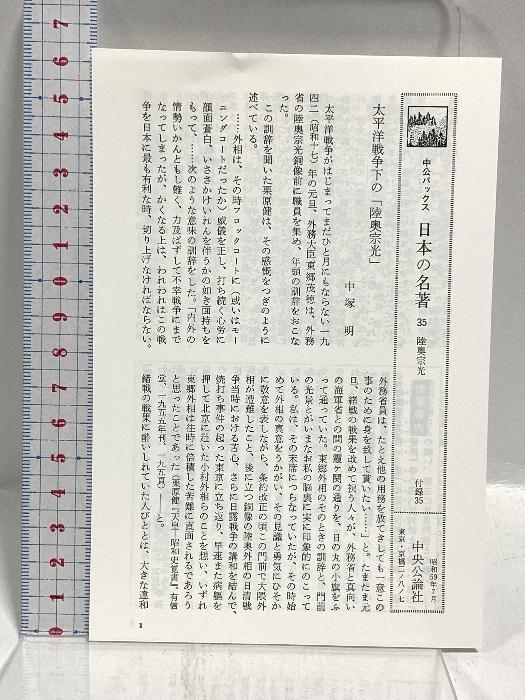 中公バックス 日本の名著 35 陸奥宗光
付録35
昭和59年7月
中央公論社
東京・京橋二ノ八ノ七
太平洋戦争下の「陸奥宗光」
中塚 明
太平洋戦争がはじまってまだひと月にもならない一九
四二(昭和十七)年の元旦、外務大臣東郷茂徳は、外務
省の陸奥宗光銅像前に職員を集め、年頭の訓辞をおこな
った。
この訓辞を聞いた栗原健は、その感慨をつぎのように
述べている。
……外相は、その時フロックコートに(或いはモー
ニングコートだったか)威儀を正し、打ち続く心労に
顔面蒼白、いささかけいれんを伴うかの如き面持ちを
もって、……次のような意味の訓辞をした。「内外の
情勢いかんともし難く、力及ばずして不幸戦争にまで
なってしまったが、かくなる上は、われわれはこの戦
争を日本に最も有利な時、切り上げなければならない。
外務省員は、たとえ他の用務を放てきしても一意この
事のために身を致して貰いたい……」と。たまたま元
旦、緒戦の戦果を改めて祝う人々が、外務省と真向い
の海軍省との間の霞ヶ関の通りを、日の丸の小旗をふ
って通っていた。東郷外相のそのときの訓辞と、門前
の光景とがいまなお私の脳裏に実に印象的にのこって
いる。私は、その末席につらなっていたが、その時始
めて外相の真意をうかがい、その見識と勇気にひそか
に敬意を表しながら、条約改正の頃この門前で大隈外
相が遭難したこと、後に立つ銅像の陸奥外相の日清戦
争当時における苦心、さらに日露戦争の講和を結んで、
焼打ち事件の起った東京に立ち返り、早速また病軀を
押して北京に赴いた小村外相らのことを想い、いずれ
東郷外相は往時に倍積した苦難に直面されるであろう
と思ったことであった(栗原健『天皇 昭和史覚書』、有信
堂、一九五五年刊、一九五頁)――と。
緒戦の戦果に酔いしれていた人びととは、大きな違和
1
7
6
5
4
3
2
1
0
9
8
7
6
5
4
3
2
1
0